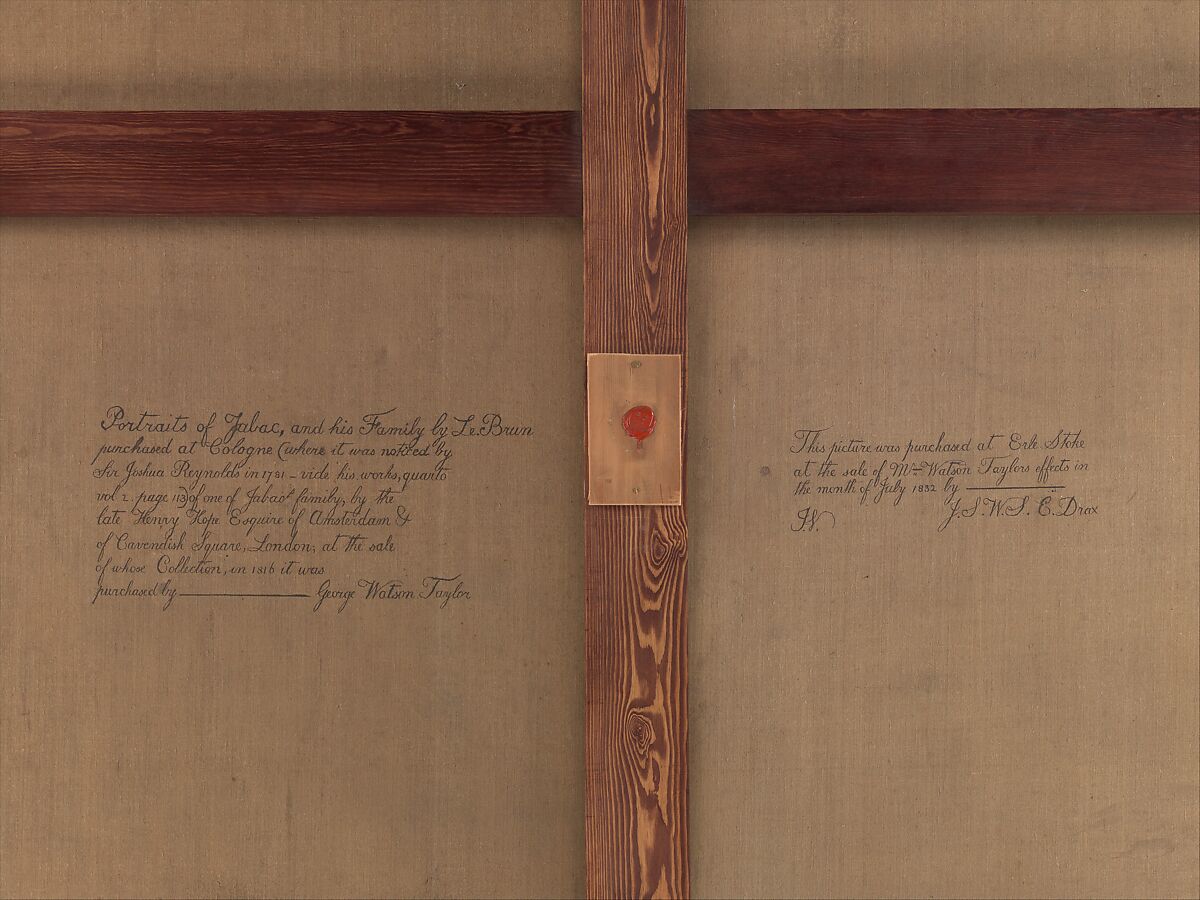 Portraits of Jabac, and his Family by Le Brun
purchased at Cologne (where it was noticed by
Sir Joshua Reynolds in 1781 – vide his works, quarto
vol 2. page 113) of one of Jabac's family, by the
late Henry Hope Esquire of Amsterdam &
of Cavendish Square, London; at the sale
of whose Collection, in 1816 it was
purchased by George Watson Taylor
This picture was purchased at Erle Stoke
at the sale of Mr Watson Taylors effects in
the month of July 1832 by
J.S.W.S.E. Drax